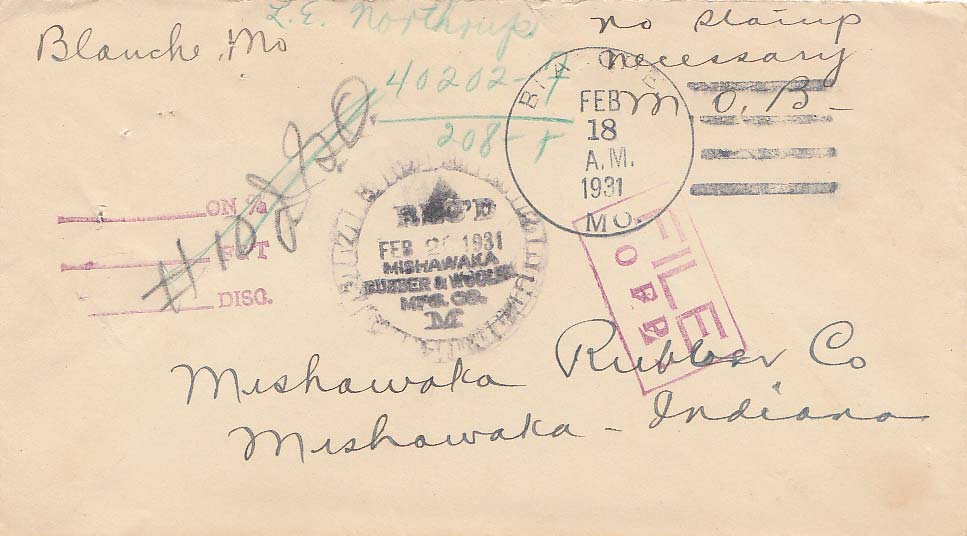 L.E. Northrup
Blanche, Mo
No Stamp
necessary
M. O. B-
40202-7
208-r
FEB
18
A.M.
1931
MO.
ON %
FRT
DISC.
REC'D
FEB 20 1931
MISHAWAKA
RUBBER & WOOLEN
MFG. CO.
M
FILE
Mishawaka Rubber Co
Mishawaka - Indiana